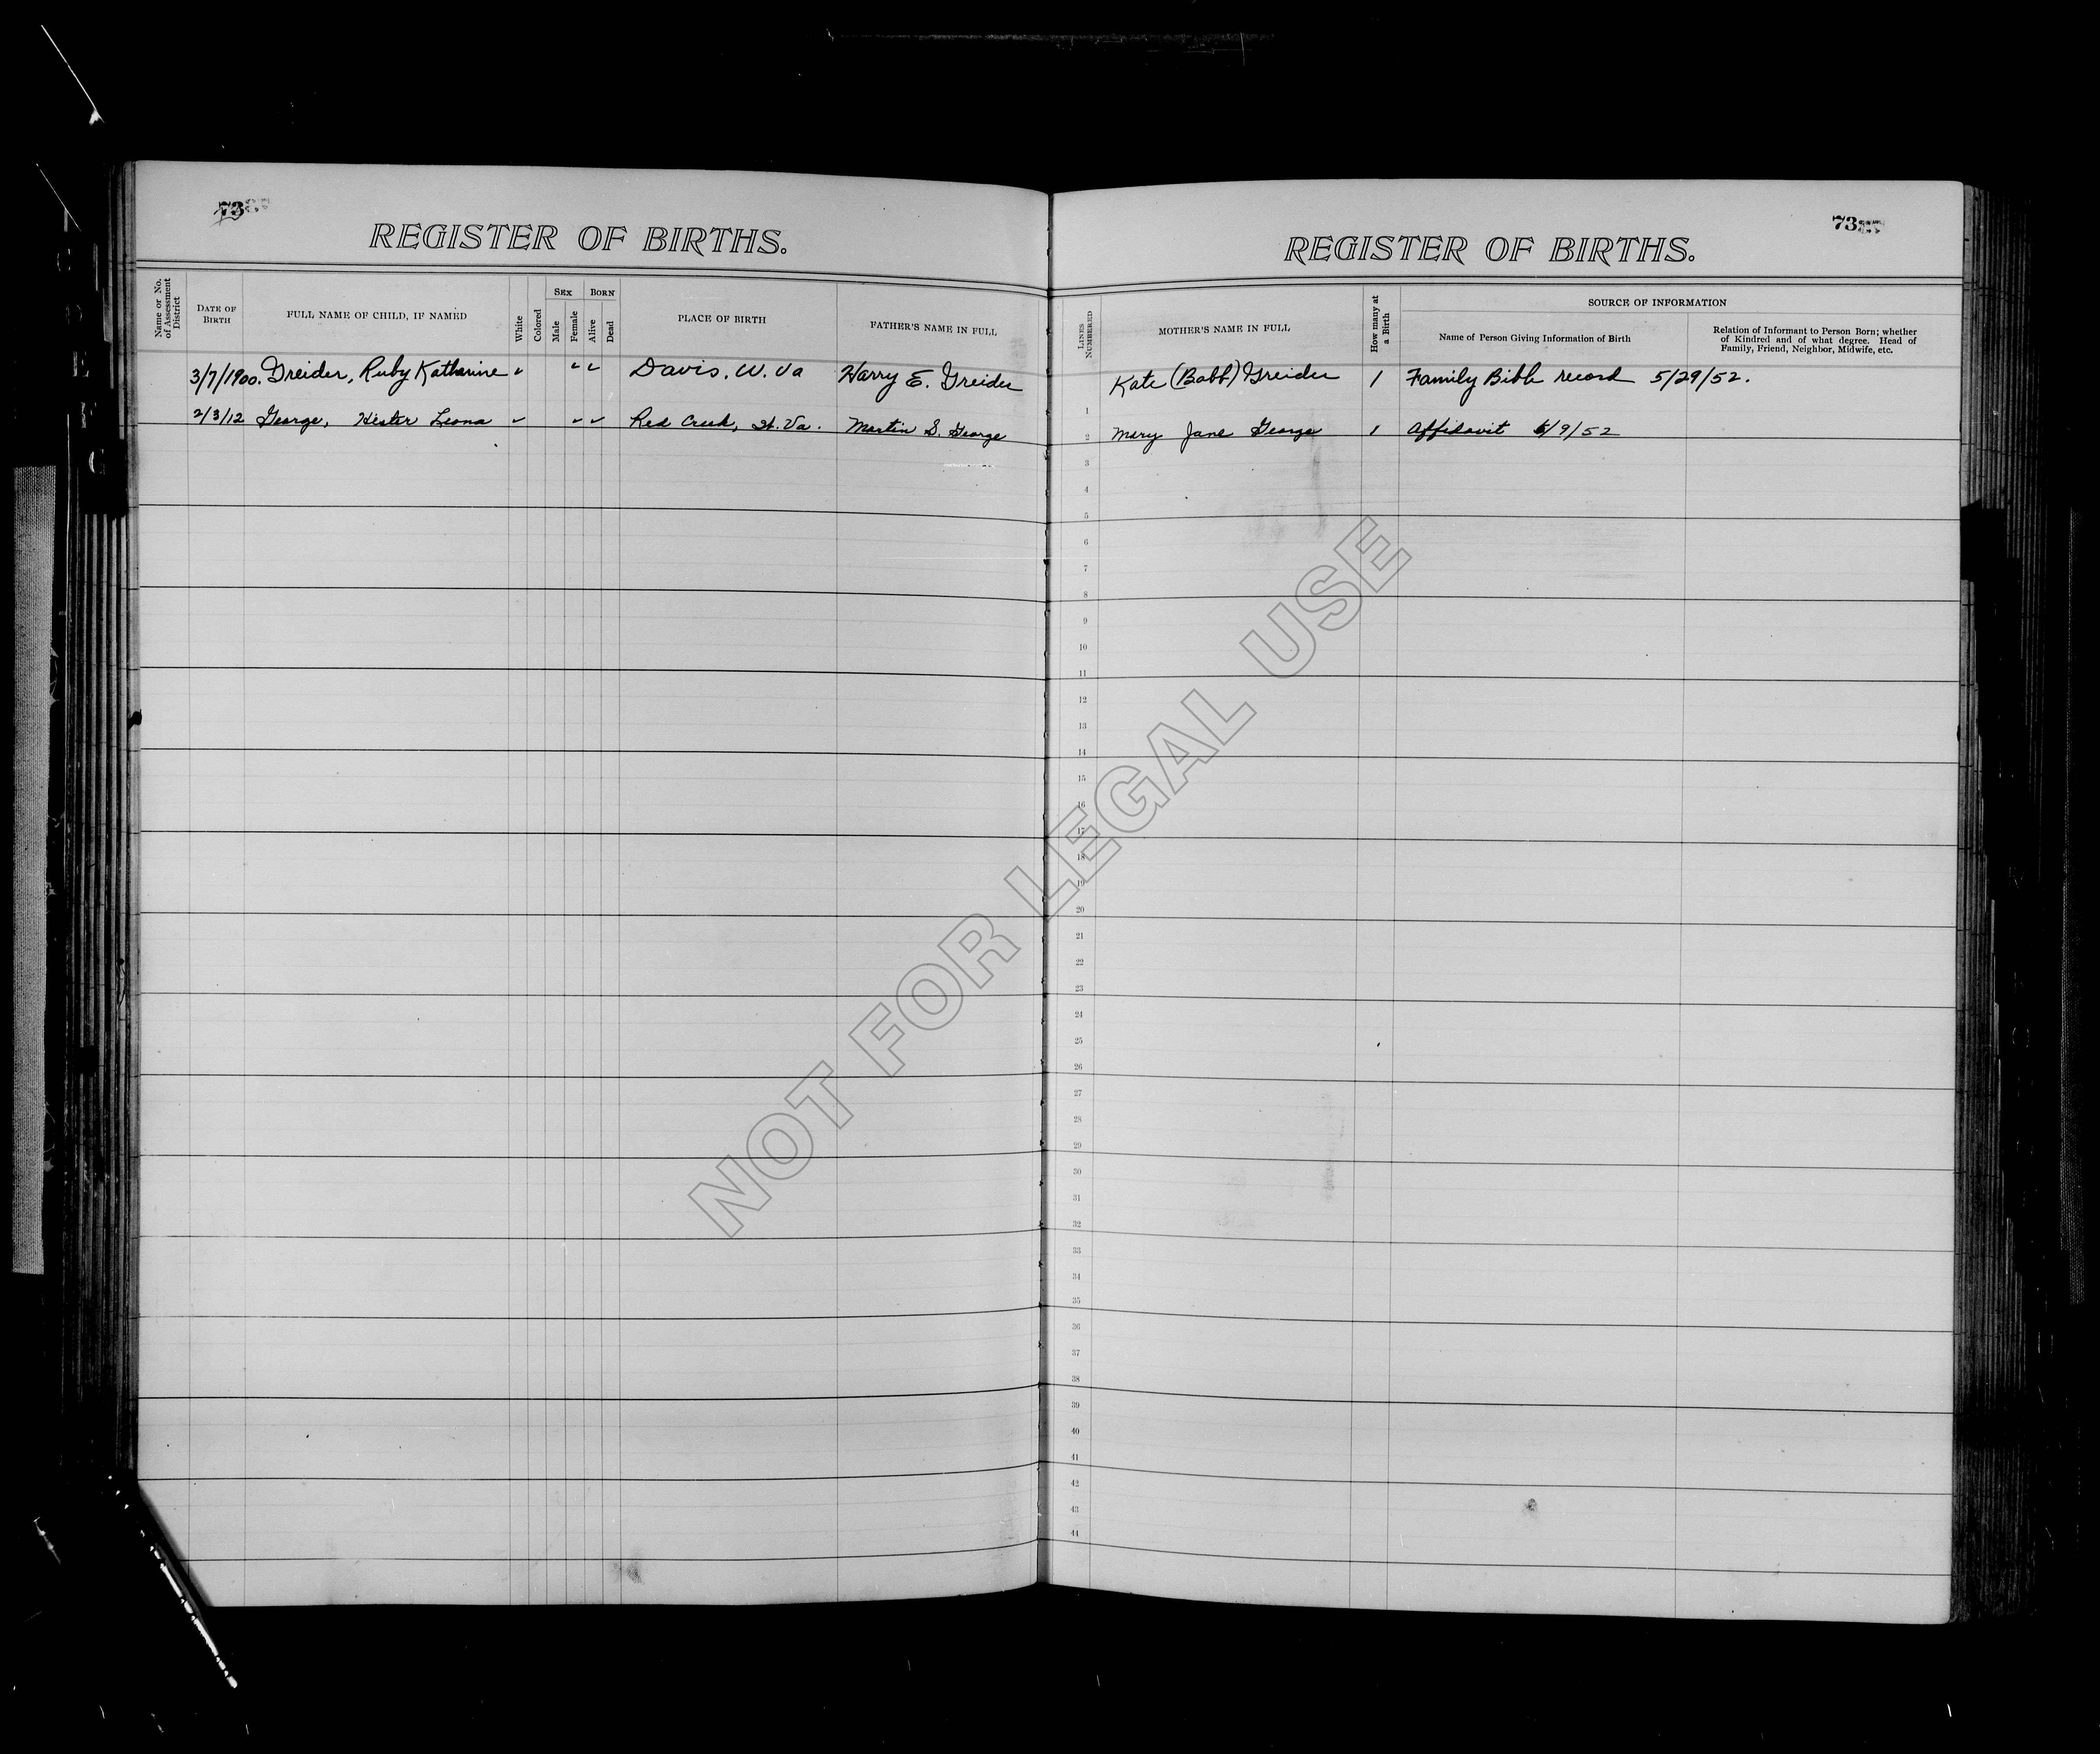 73
REGISTER OF BIRTHS.
Name or No. of Assessment District
DATE OF BIRTH
FULL NAME OF CHILD, IF NAMED
White
Colored
SEX
Male
Female
BORN
Alive
Dead
PLACE OF BIRTH
FATHER'S NAME IN FULL
3/7/1900. Greider, Ruby Katharine ✓ ✓ ✓ Davis, W. Va Harry E. Greider
2/3/12 George, Hester Leona ✓ ✓ ✓ Red Creek, W. Va. Martin S. George
73
REGISTER OF BIRTHS.
LINES NUMBERED
MOTHER'S NAME IN FULL
How many at a Birth
SOURCE OF INFORMATION
Name of Person Giving Information of Birth
Relation of Informant to Person Born; whether
of Kindred and of what degree. Head of
Family, Friend, Neighbor, Midwife, etc.
Kate (Babb) Greider 1 Family Bible record 5/29/52.
1
2 Mary Jane George 1 Affidavit 6/9/52
3
4
5
6
7
8
9
10
11
12
13
14
15
16
17
18
19
20
21
22
23
24
25
26
27
28
29
30
31
32
33
34
35
36
37
38
39
40
41
42
43
44
NOT FOR LEGAL USE